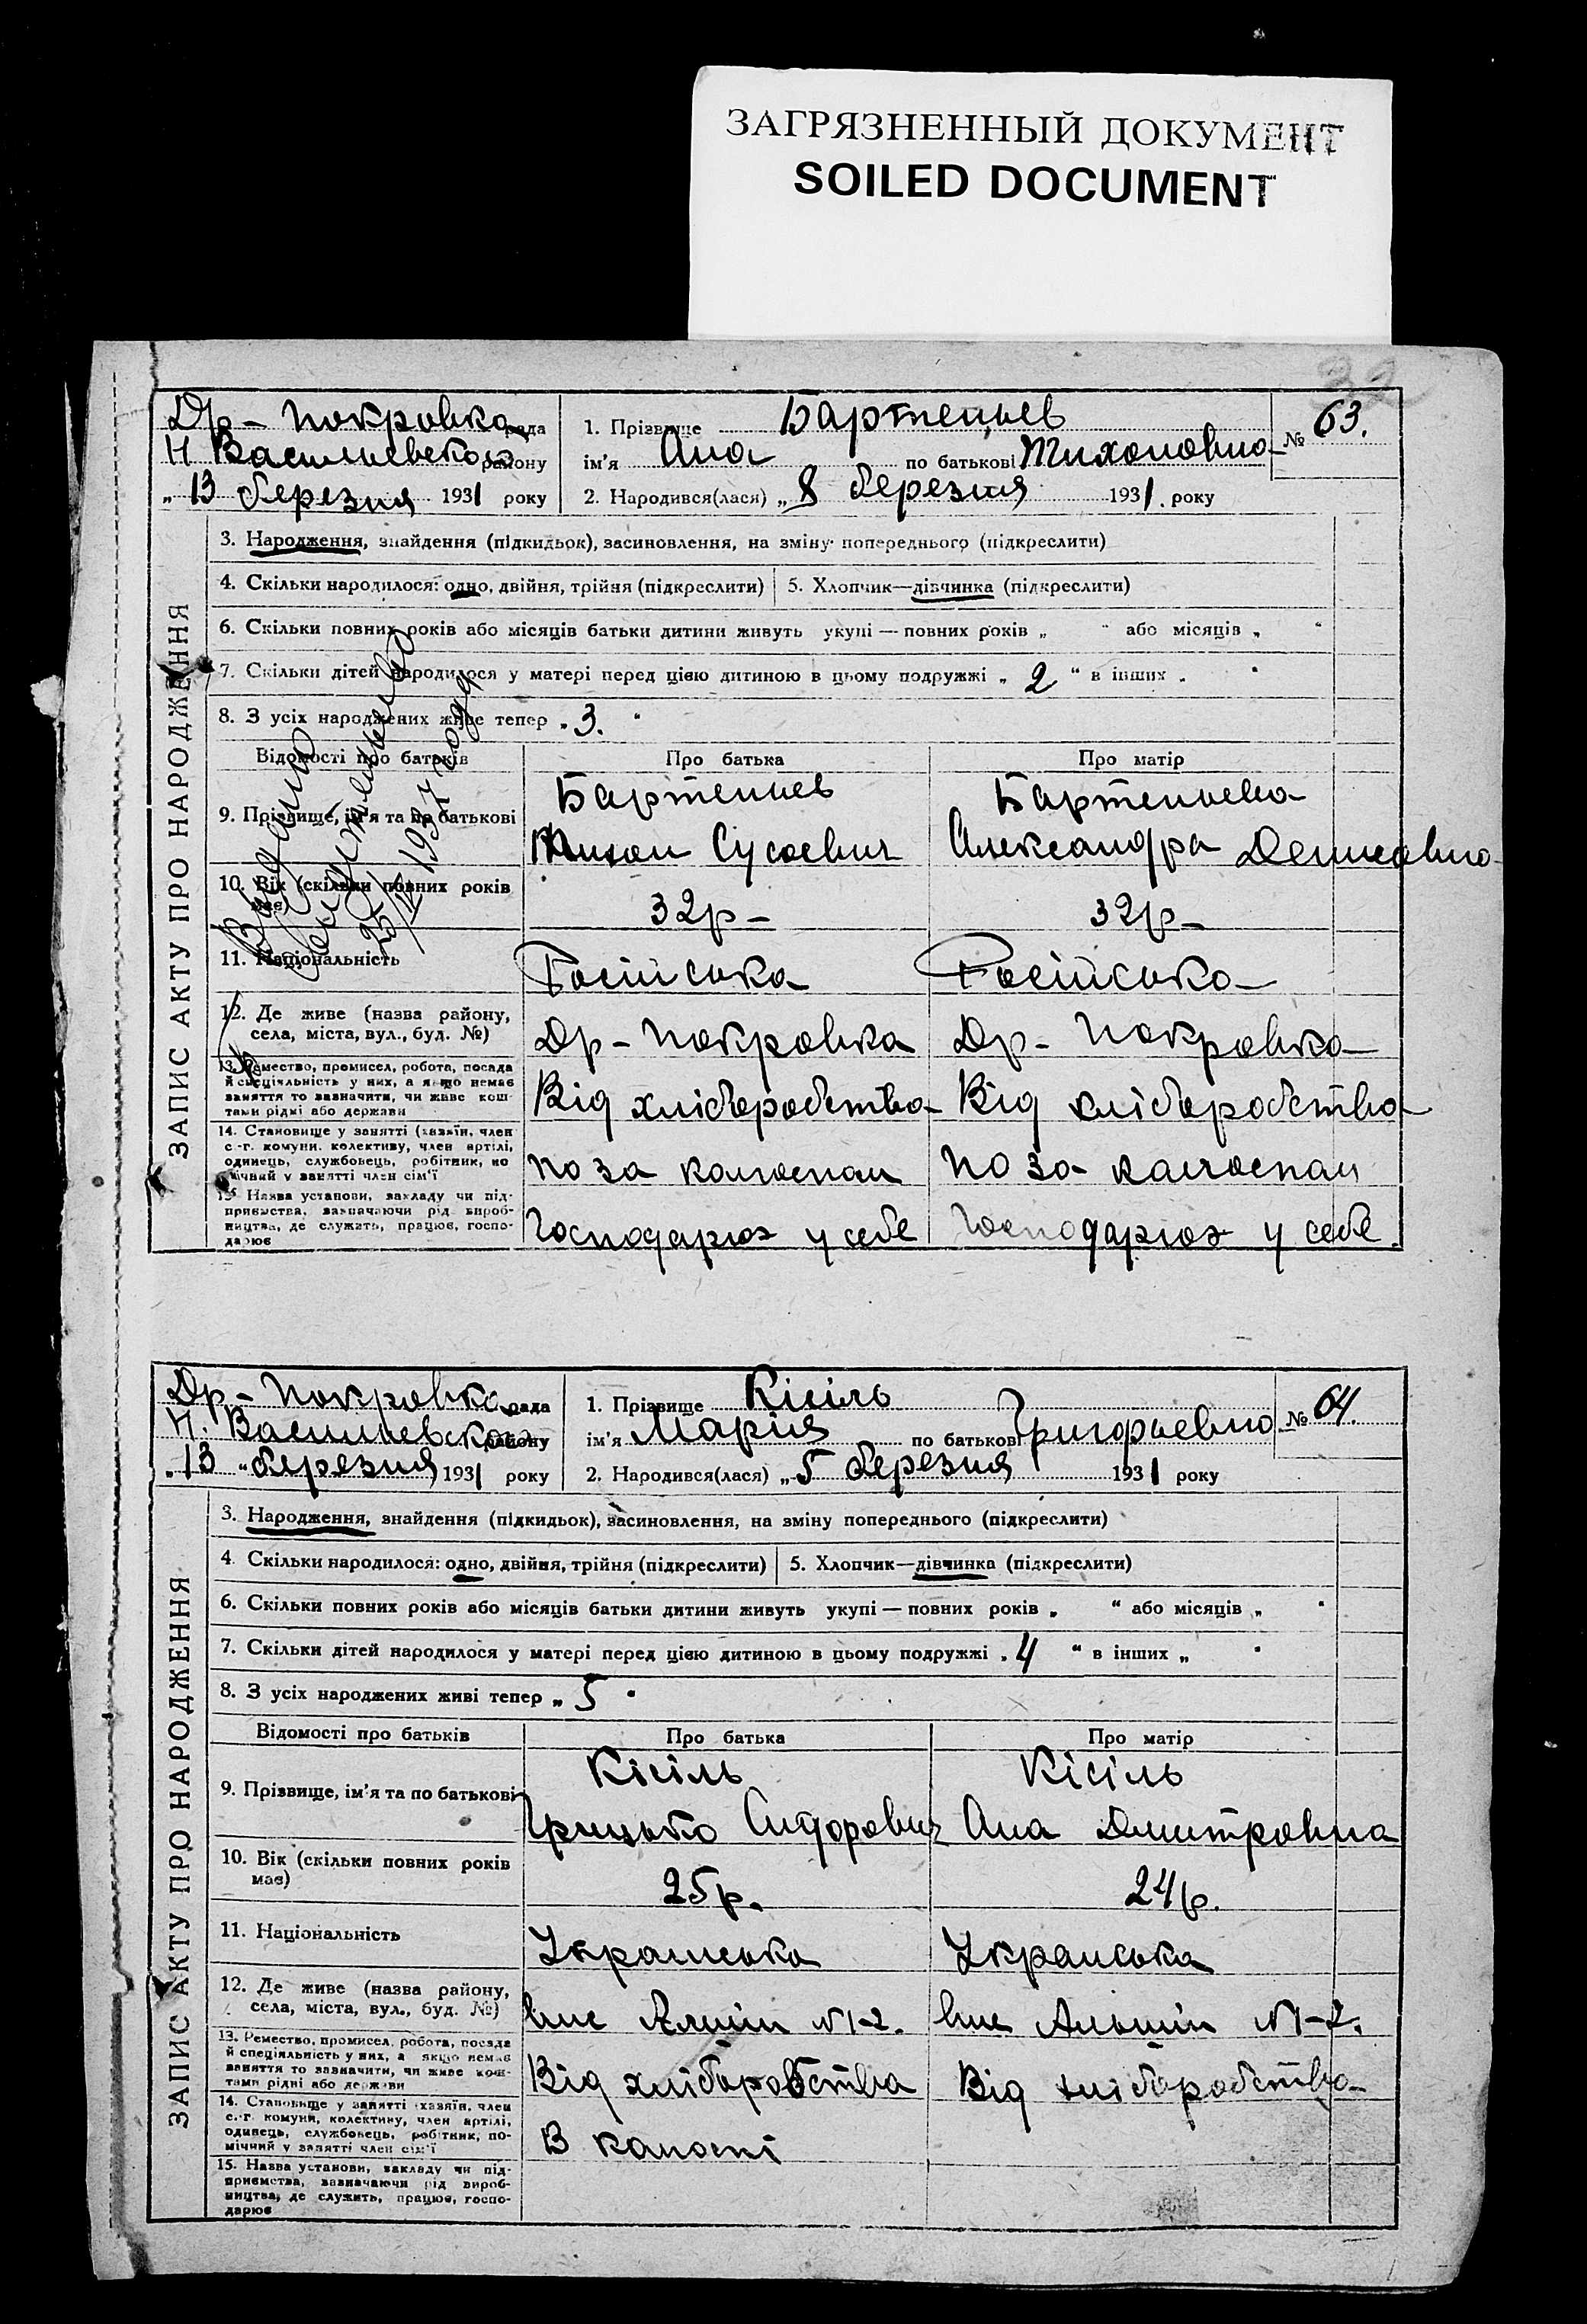 ЗАГРЯЗНЕННЫЙ ДОКУМЕНТ
SOILED DOCUMENT
32
Др- Покровка рада
Н Васильевского району
„ 13 березня 1931 року
1. Прізвище Бартеньев
ім'я Ана по батькові Тихоновна
№ 63.
2. Народився(лася) „ 8 березня 1931. року
ЗАПИС АКТУ ПРО НАРОДЖЕННЯ
3. Народження, знайдення (підкидьок), засиновлення, на зміну попереднього (підкреслити)
4. Скільки народилося: одно, двійня, трійня (підкреслити) 5. Хлопчик—дівчинка (підкреслити)
6. Скільки повних років або місяців батьки дитини живуть укупі — повних років „ “ або місяців „ “
7. Скільки дітей народилося у матері перед цією дитиною в цьому подружжі „ 2 “ в інших „ “
8. З усіх народжених живе тепер „ 3. “
Видано
свидетельство
1937 года
Відомості про батьків Про батька Про матір
9. Прізвище, ім'я та по батькові
Бартеньев Бартеньева
Тихон Сусоевич Александра Денисовна
10. Вік (скільки повних років
має)
32р- 32р-
11. Національність
Російська Російська
12. Де живе (назва району,
села, міста, вул., буд. №)
Др- Покровка Др- Покровка
13. Ремество, промисел, робота, посада
й спеціяльність у них, а якщо немає
заняття то зазначити, чи живе кош-
тами рідні або держави
Від хліборобства Від хліборобства
14. Становище у занятті (хазяїн, член
с.-г. комуни, колективу, член артілі,
одинець, службовець, робітник, по-
мічний у занятті член сім'ї
по за колгоспам по за колгоспам
15. Назва установи, закладу чи під-
приємства, зазначаючи рід вироб-
ництва, де служить, працює, госпо-
дарює
Господарює у себе Господарює у себе.
Др- Покровка рада
Н. Васильевского району
„ 13 „ березня 1931 року
1. Прізвище Кісіль
ім'я Марія по батькові Григорьевна
№ 64.
2. Народився(лася) „ 5 березня 1931 року
ЗАПИС АКТУ ПРО НАРОДЖЕННЯ
3. Народження, знайдення (підкидьок), засиновлення, на зміну попереднього (підкреслити)
4. Скільки народилося: одно, двійня, трійня (підкреслити) 5. Хлопчик—дівчинка (підкреслити)
6. Скільки повних років або місяців батьки дитини живуть укупі — повних років „ “ або місяців „ “
7. Скільки дітей народилося у матері перед цією дитиною в цьому подружжі „ 4 “ в інших „ “
8. З усіх народжених живі тепер „ 5 “
Відомості про батьків Про батька Про матір
9. Прізвище, ім'я та по батькові
Кісіль Кісіль
Грицько Сидорович Ана Дмитровна
10. Вік (скільки повних років
має)
25р. 24р.
11. Національність
Українська Українська
12. Де живе (назва району,
села, міста, вул., буд. №)
№1-2. №1-2.
13. Ремество, промисел, робота, посада
й спеціяльність у них, а якщо немає
заняття то зазначити, чи живе кош-
тами рідні або держави
Від хліборобства Від хліборобства
14. Становище у занятті (хазяїн, член
с.-г. комуни, колективу, член артілі,
одинець, службовець, робітник, по-
мічний у занятті член сім'ї
В колгоспі
15. Назва установи, закладу чи під-
приємства, зазначаючи рід вироб-
ництва, де служить, працює, госпо-
дарює